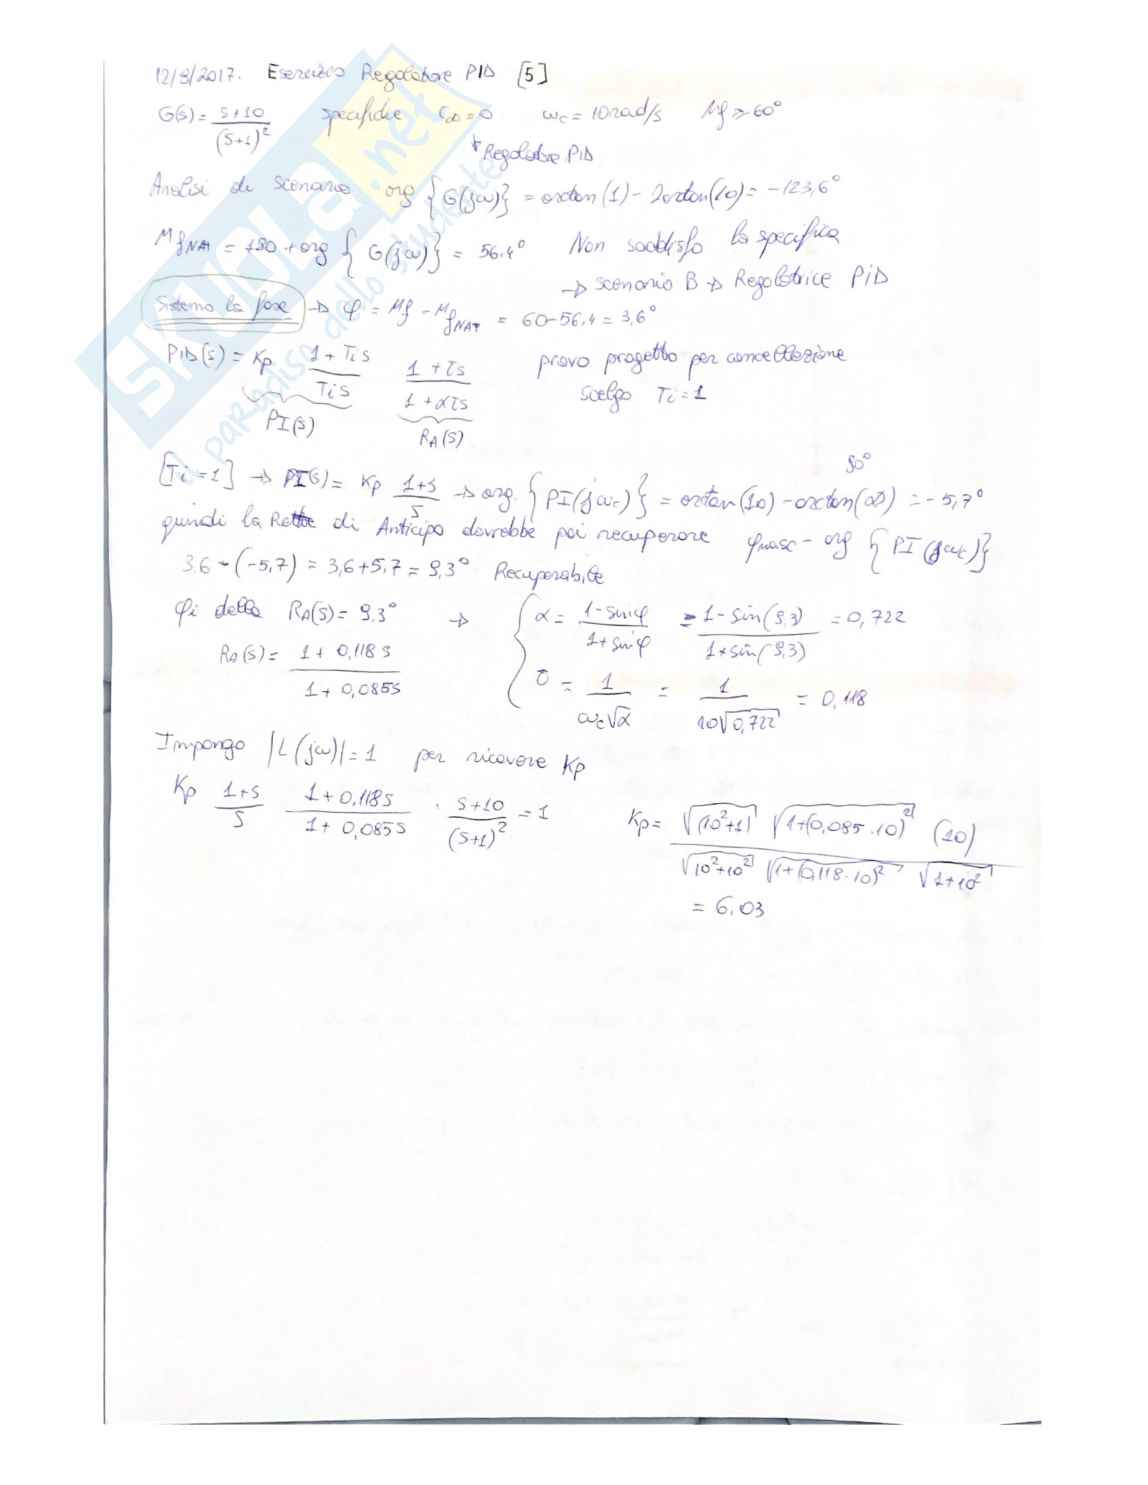 12/9/2017. Esercizio Regolatore PID [5]
G(s) = s+10 / (s+1)² specifiche e∞=0 ωc = 10 rad/s Mf ≥ 60°
* Regolatore PID
Analisi di scenario arg {G(jω)} = arctan(1) - 2arctan(10) = -123,6°
MfNAT = 180 + arg {G(jω)} = 56.4° Non soddisfo la specifica
→ scenario B → Regolatrice PID
Sistemo la fase → φ = Mf - MfNAT = 60-56.4 = 3,6°
PID(s) = Kp 1+Tis / Tis 1+τs / 1+ατs provo progetto per cancellazione
scelgo Ti = 1
PI(s) RA(s)
90°
[Ti = 1] → PI(s) = Kp 1+s / s → arg. {PI(jωc)} = arctan(10) - arctan(∞) = -5,7°
quindi la Rette di Anticipo dovrebbe poi recuperare φmax - arg {PI(jωc)}
3.6 - (-5,7) = 3,6+5,7 = 9,3° Recuperabile
φi della RA(s) = 9.3° → α = 1-sinφ / 1+sinφ = 1-sin(9,3) / 1+sin(9,3) = 0,722
RA(s) = 1+0,118s / 1+0,085s
τ = 1 / ωc√α = 1 / 10√0,722 = 0,118
Impongo |L(jω)| = 1 per ricavare Kp
Kp 1+s / s 1+0,118s / 1+0,085s · s+10 / (s+1)² = 1
Kp = √(10²+1) √1+(0,085·10)² (10) / √10²+10² √1+(0,118·10)² √1+10²
= 6.03
SKUOLA.net
il paradiso dello studente